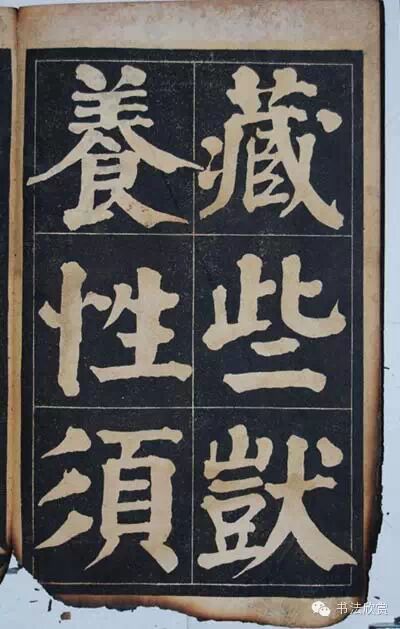 藏些獃
養性須
书法欣赏